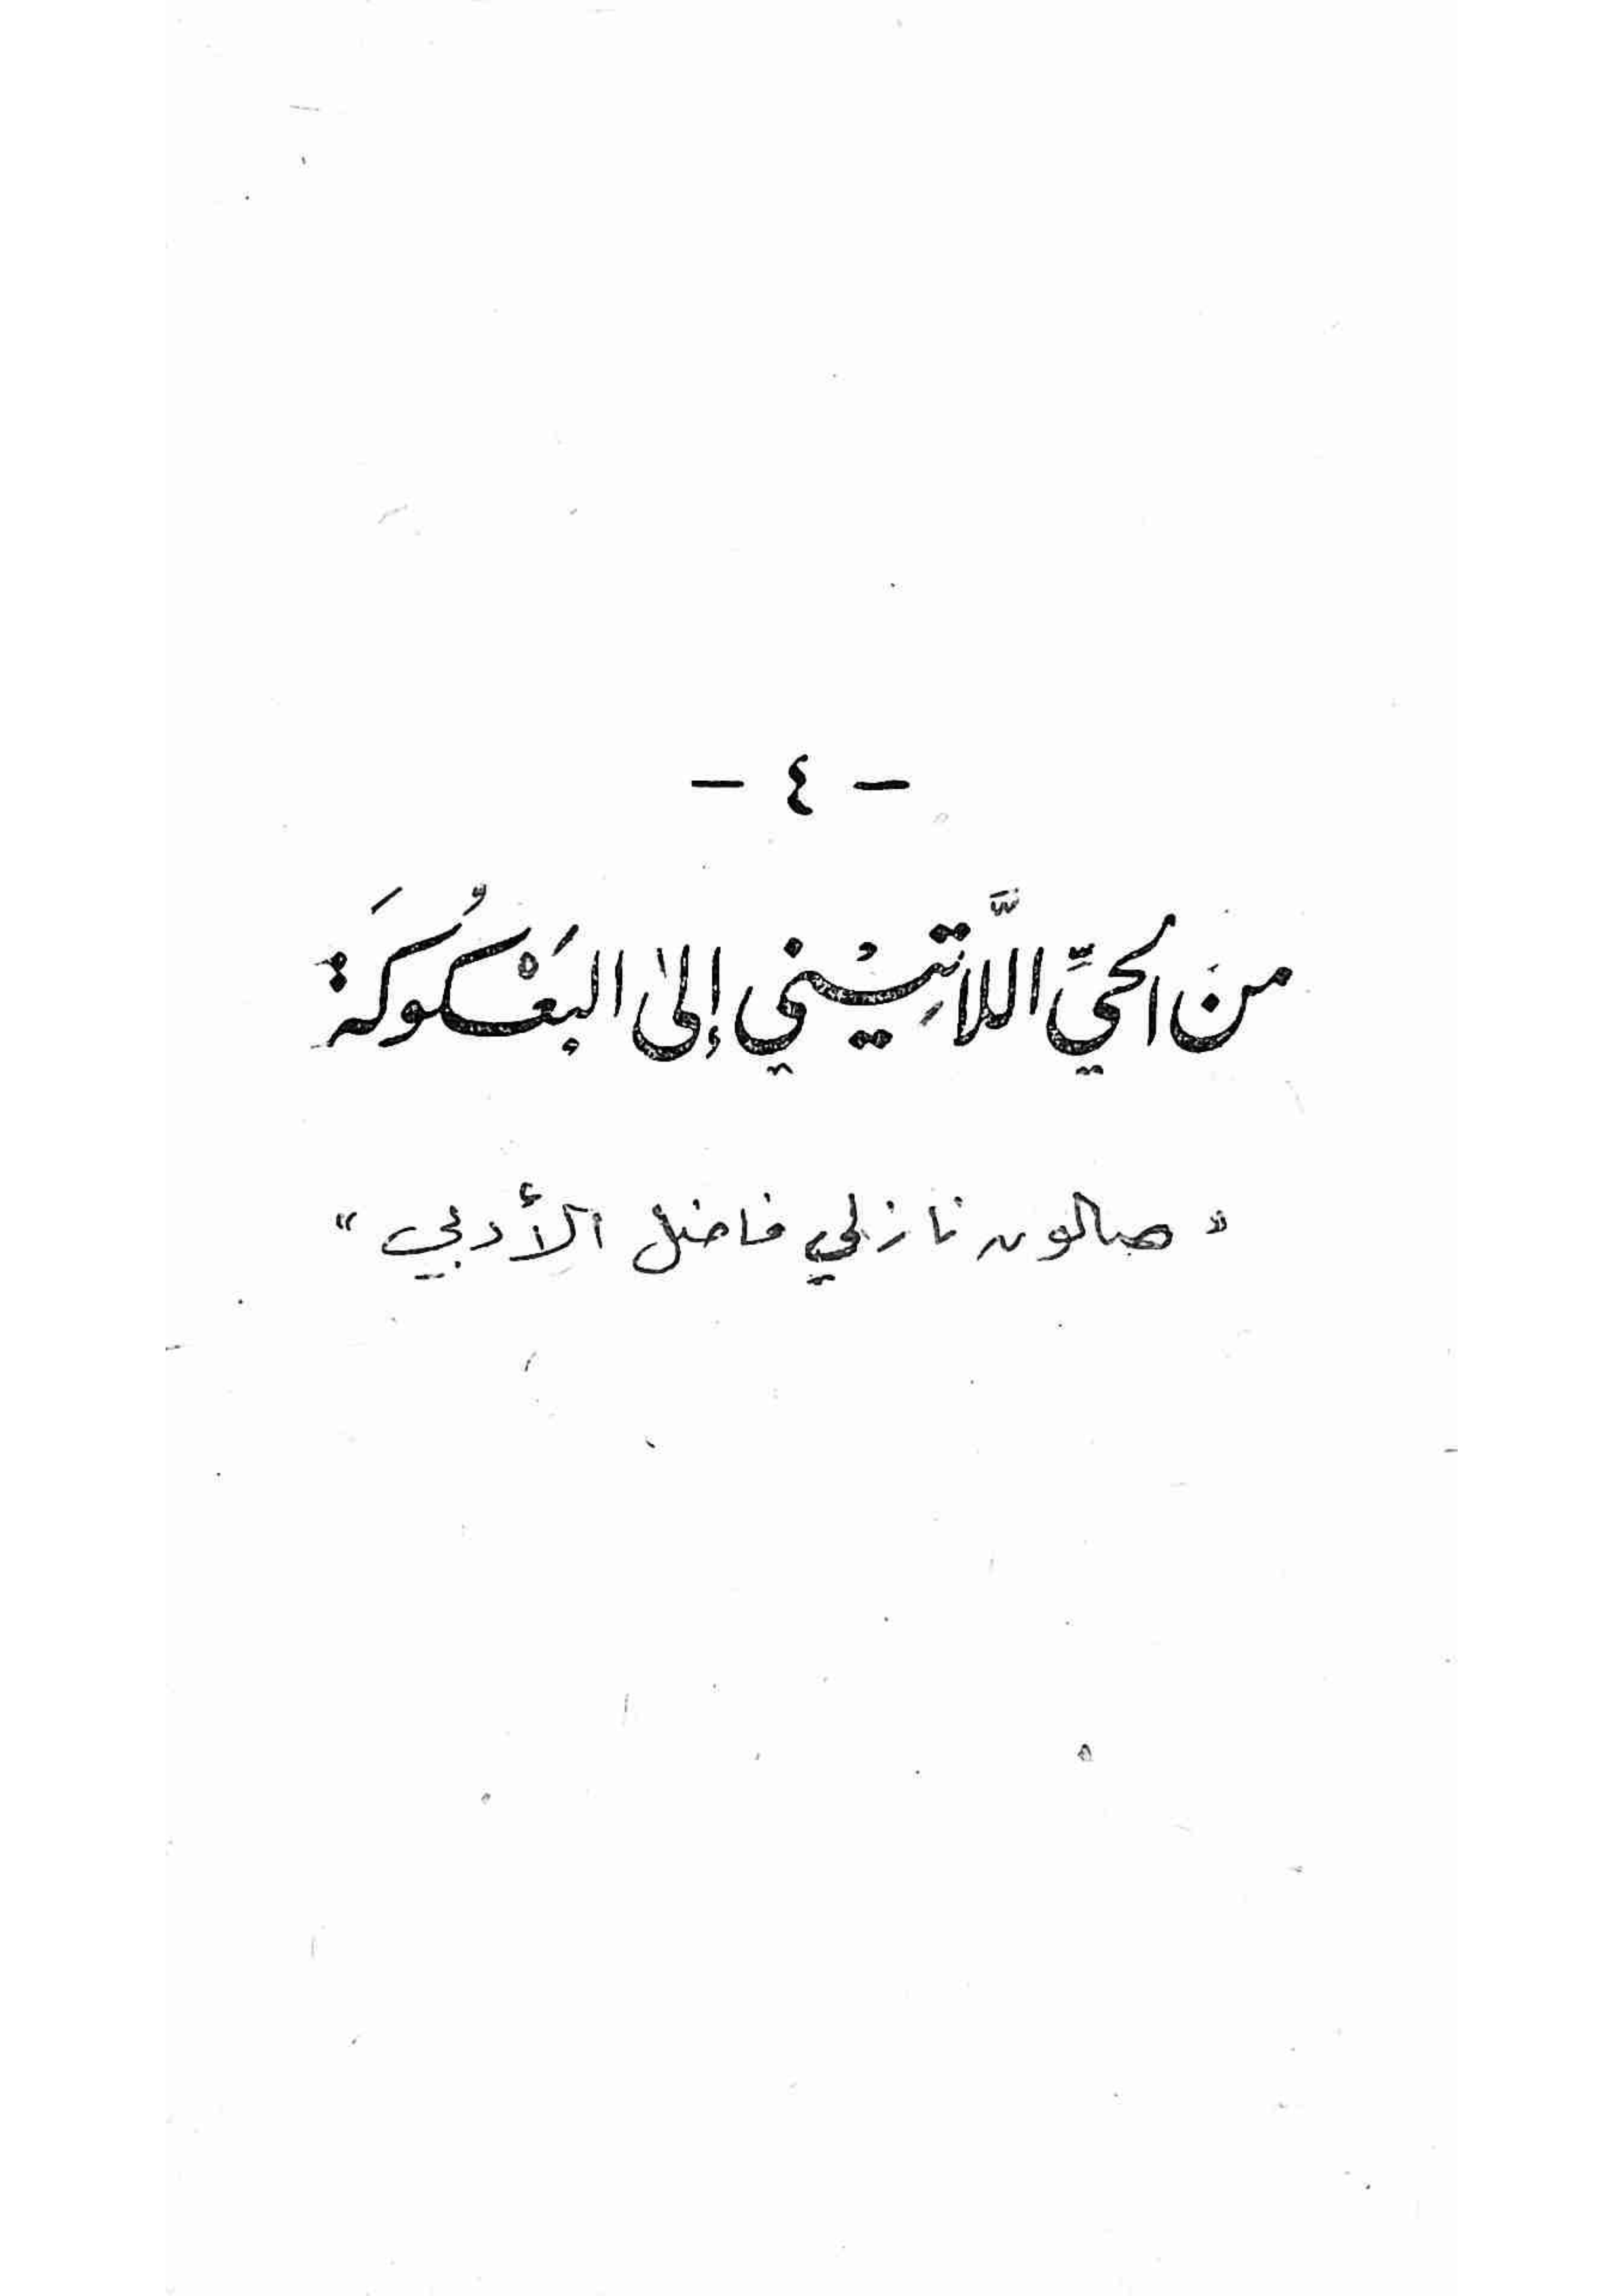 - ٤ -
من الحيِّ اللَّاتِيْني إلى البَعْكُوكَة
"صالون نازلي فاضل الأدبي"